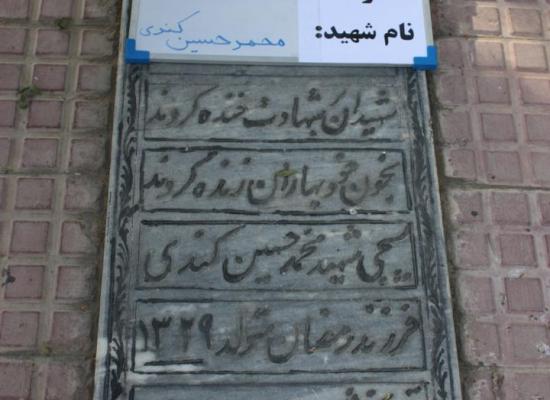 نام شهید:
محمد حسین کندی
شهیدان بشهادت خنده کردند
بخون خود بهاران زنده کردند
بسیجی شهید محمد حسین کندی
فرزند رمضان متولد ۱۳۲۹